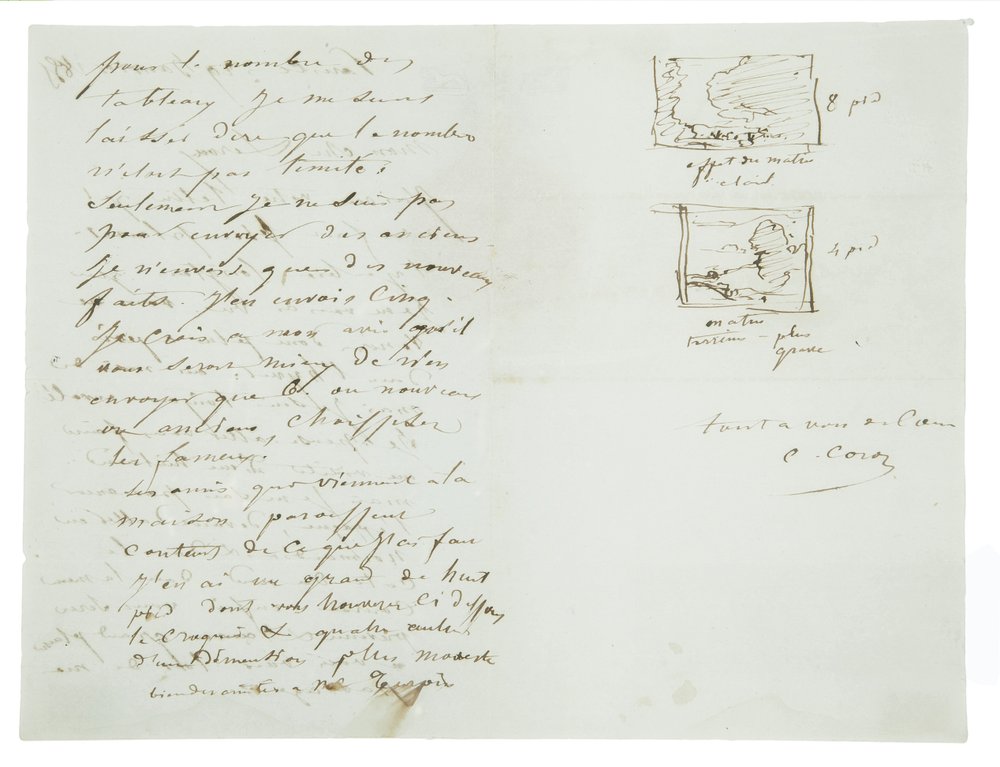 pour le nombre des
tableaux je me suis
laisser dire que le nombre
n'etait pas limité;
Seulement je ne suis pas
pour envoyer des anciens
je n'envois que des nouveaux
faits. J'en envois Cinq.
Je crois a mon avis qu'il
vous serait mieux de n'en
envoyer que 6. ou nouveaux
ou anciens Choississer
les fameux.
Les amis qui viennent a la
maison paroissent
contents de ce que J'ai fait
J'en ai un grand de huit
pied dont vous trouverer ci dessous
le croquis & quatre autres
d'une Dementions plus modeste
bien des amities a Me
8 pied
effet du matin
clair
4 pied
matin
terrains - plus
grave
tout a vous de Coeur
C. Corot